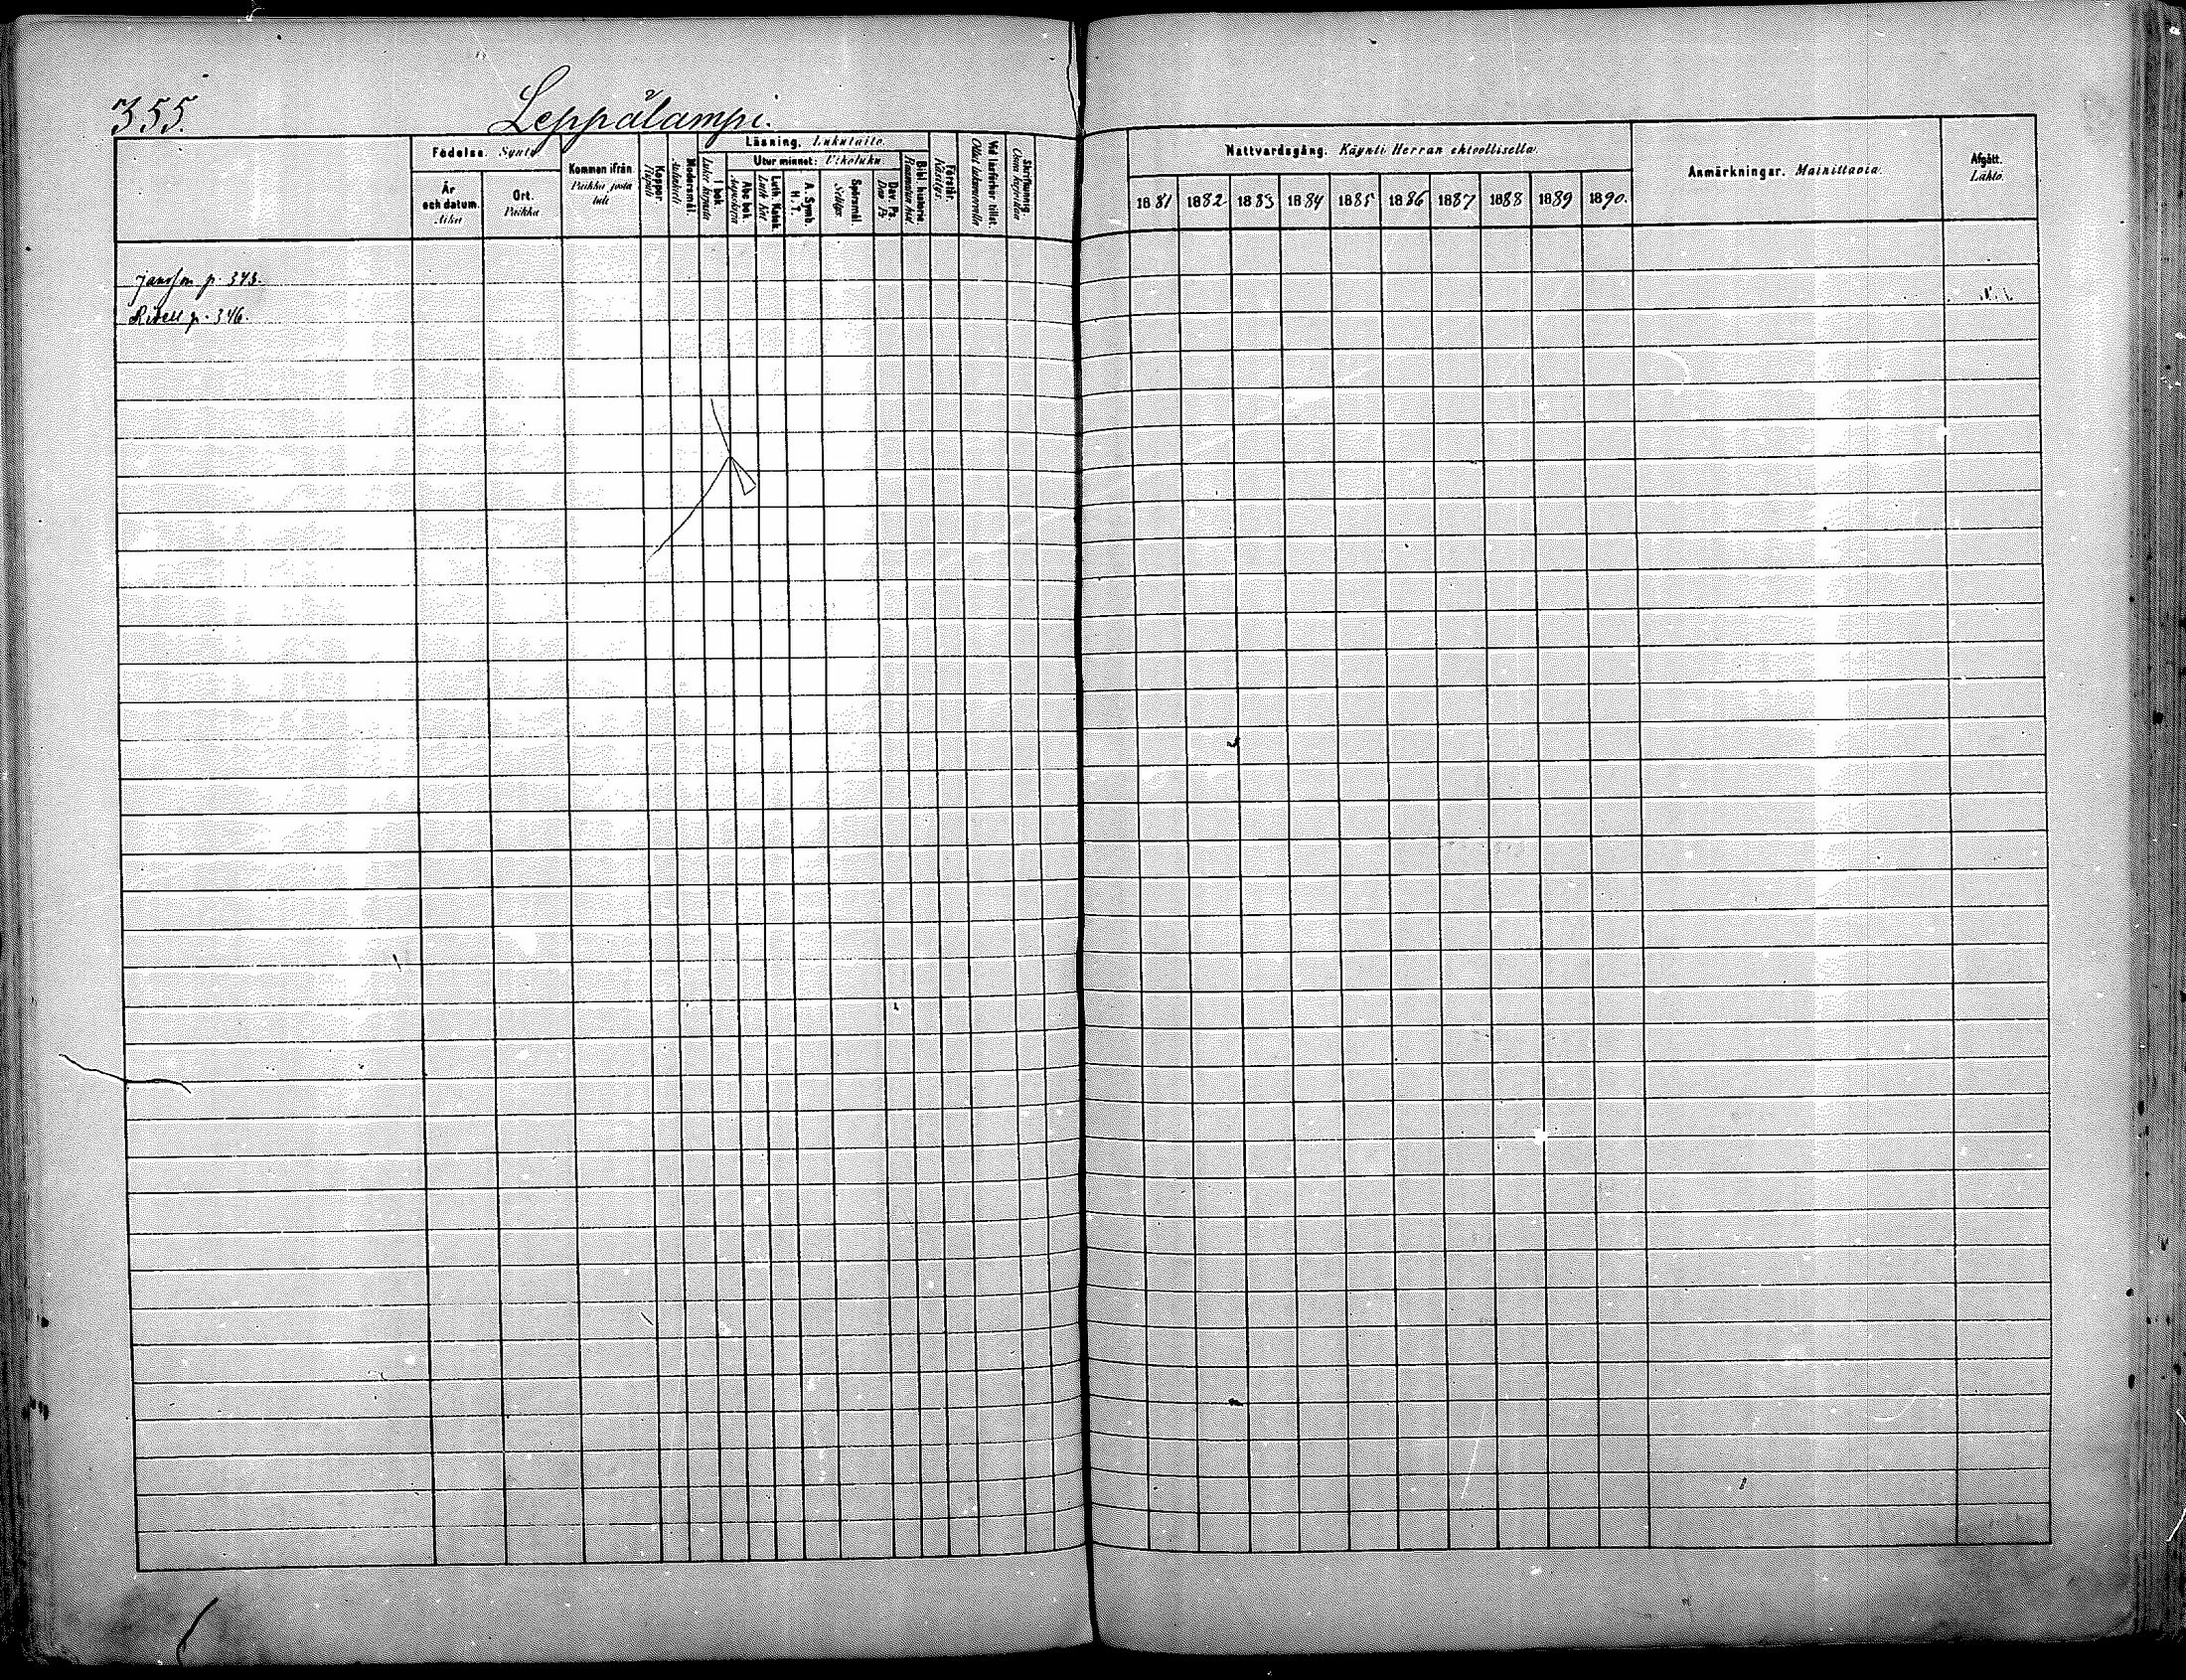 355.
Leppälampi.
Födelse. Synty
År och datum. Aika
Ort. Paikka
Kommen ifrån. Paikka josta tuli
Koppor. Rupuli
Modersmål.
Läsning. Lukutaito.
I bok. Luku kirjasta
Utur minnet: Ulkoluku.
Abc bok. Aapiskirja
Luth. Katek. Luth. Kat
A. Symb. H. T.
Spörsmål. Selitys.
Dav. Ps Dav. Ps
Bibl. historia.
Förstår. Käsitys.
Vid läsförhör tillst.
Skriftkunnig.
Nattvardsgång. Käynti Herran ehtoollisella.
1881 1882 1883 1884 1885 1886 1887 1888 1889 1890.
Anmärkningar. Mainittavia.
Afgått. Lähtö.
Jansson p. 373.
p. 346.